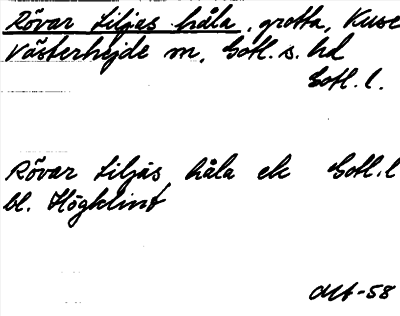 Rövar Liljas håla, grotta, Kuse
Västerhejde sn, Gotl. s. hd
Gotl. l.
Rövar Liljas håla ek Gotl. l
bl. Högklint
-58